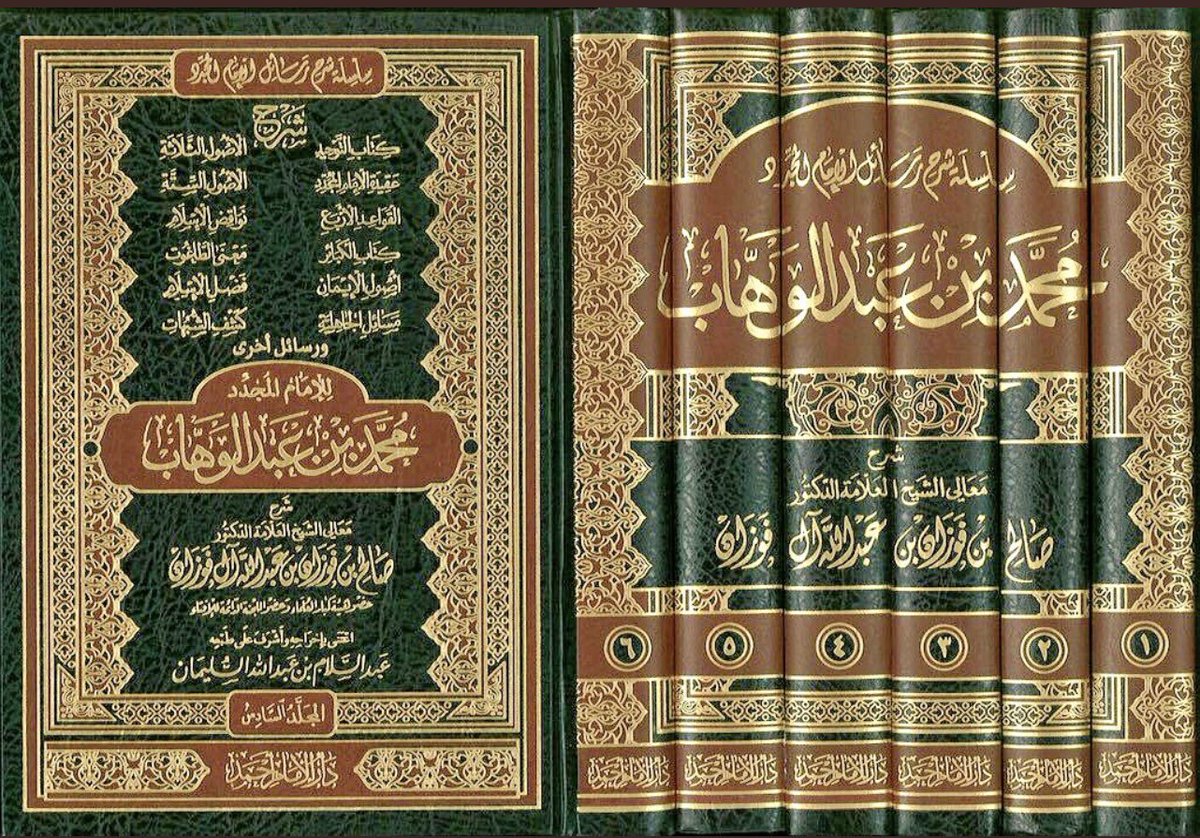 سلسلة شرح رسائل الإمام المجدد
شرح
كتاب التوحيد الأصول الثلاثة
عقيدة الإمام المجدد الأصول الستة
القواعد الأربع نواقض الإسلام
كتاب الكبائر معنى الطاغوت
أصول الإيمان فضل الإسلام
مسائل الجاهلية كشف الشبهات
ورسائل أخرى
للإمام المجدد
محمد بن عبد الوهاب
شرح
معالي الشيخ العلامة الدكتور
صالح بن فوزان بن عبد الله آل فوزان
عضو هيئة كبار العلماء وعضو اللجنة الدائمة للإفتاء
اعتنى بإخراجه وأشرف على طبعه
عبد السلام بن عبد الله السليمان
المجلد السادس
دار الإمام أحمد
سلسلة شرح رسائل الإمام المجدد
محمد بن عبد الوهاب
شرح
معالي الشيخ العلامة الدكتور
صالح بن فوزان بن عبد الله آل فوزان
١ ٢ ٣ ٤ ٥ ٦
دار الإمام أحمد دار الإمام أحمد دار الإمام أحمد دار الإمام أحمد دار الإمام أحمد دار الإمام أحمد